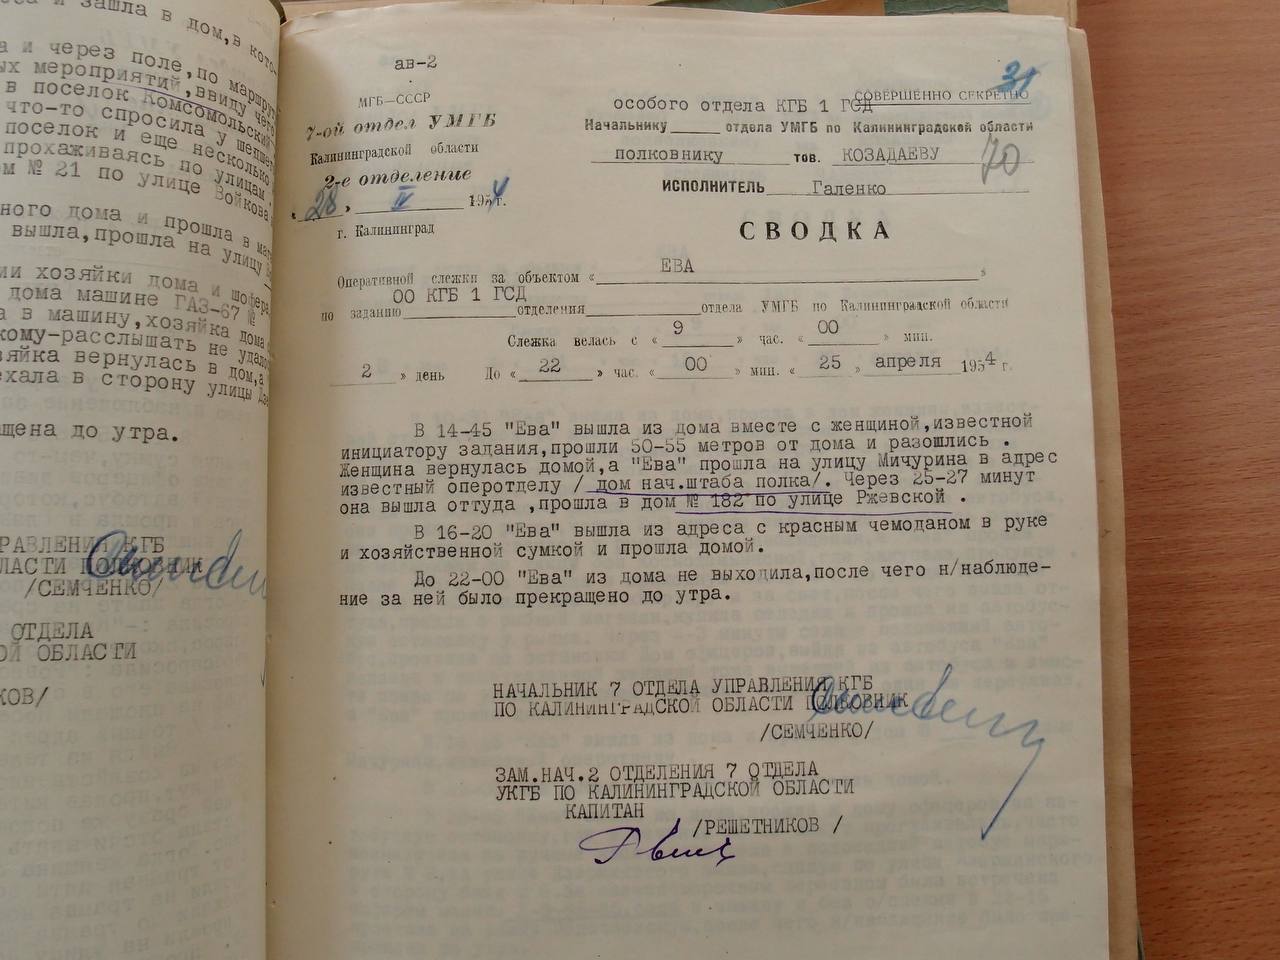 и зашла в дом, в кото-
а и через поле, по маршру
ых мероприятий, ввиду чего
в поселок Комсомольский
что-то спросила у
поселок и еще несколько
прохаживаясь по улицам.
ом № 21 по улице Войкова
ного дома и прошла в
вышла, прошла на улицу
ии хозяйки дома и шофера,
дома машине ГАЗ-67 №
а в машину, хозяйка дома
кому-расслышать не удало
зяйка вернулась в дом, а
ехала в сторону улицы
щена до утра.
РАВЛЕНИЯ КГБ
ЛАСТИ ПОЛКОВНИК
/СЕМЧЕНКО/
ОТДЕЛА
ОЙ ОБЛАСТИ
КОВ/
ав-2
31
МГБ—СССР
7-ой отдел УМГБ
Калининградской области
2-е отделение
„ 28 „ IV 1954 г.
г. Калининград
СОВЕРШЕННО СЕКРЕТНО
особого отдела КГБ 1 ГСД
Начальнику отдела УМГБ по Калининградской области
полковнику тов. КОЗАДАЕВУ
70
ИСПОЛНИТЕЛЬ Галенко
СВОДКА
Оперативной слежки за объектом « ЕВА »
по заданию ОО КГБ 1 ГСД отделения отдела УМГБ по Калининградской области
Слежка велась с « 9 » час. « 00 » мин.
2 » день До « 22 » час. « 00 » мин. « 25 » апреля 1954 г.
В 14-45 "Ева" вышла из дома вместе с женщиной, известной
инициатору задания, прошли 50-55 метров от дома и разошлись .
Женщина вернулась домой, а "Ева" прошла на улицу Мичурина в адрес
известный оперотделу / дом нач.штаба полка/. Через 25-27 минут
она вышла оттуда ,прошла в дом № 182 по улице Ржевской .
В 16-20 "Ева" вышла из адреса с красным чемоданом в руке
и хозяйственной сумкой и прошла домой.
До 22-00 "Ева" из дома не выходила, после чего н/наблюде-
ние за ней было прекращено до утра.
НАЧАЛЬНИК 7 ОТДЕЛА УПРАВЛЕНИЯ КГБ
ПО КАЛИНИНГРАДСКОЙ ОБЛАСТИ ПОЛКОВНИК
/СЕМЧЕНКО/
ЗАМ.НАЧ.2 ОТДЕЛЕНИЯ 7 ОТДЕЛА
УКГБ ПО КАЛИНИНГРАДСКОЙ ОБЛАСТИ
КАПИТАН
/РЕШЕТНИКОВ /